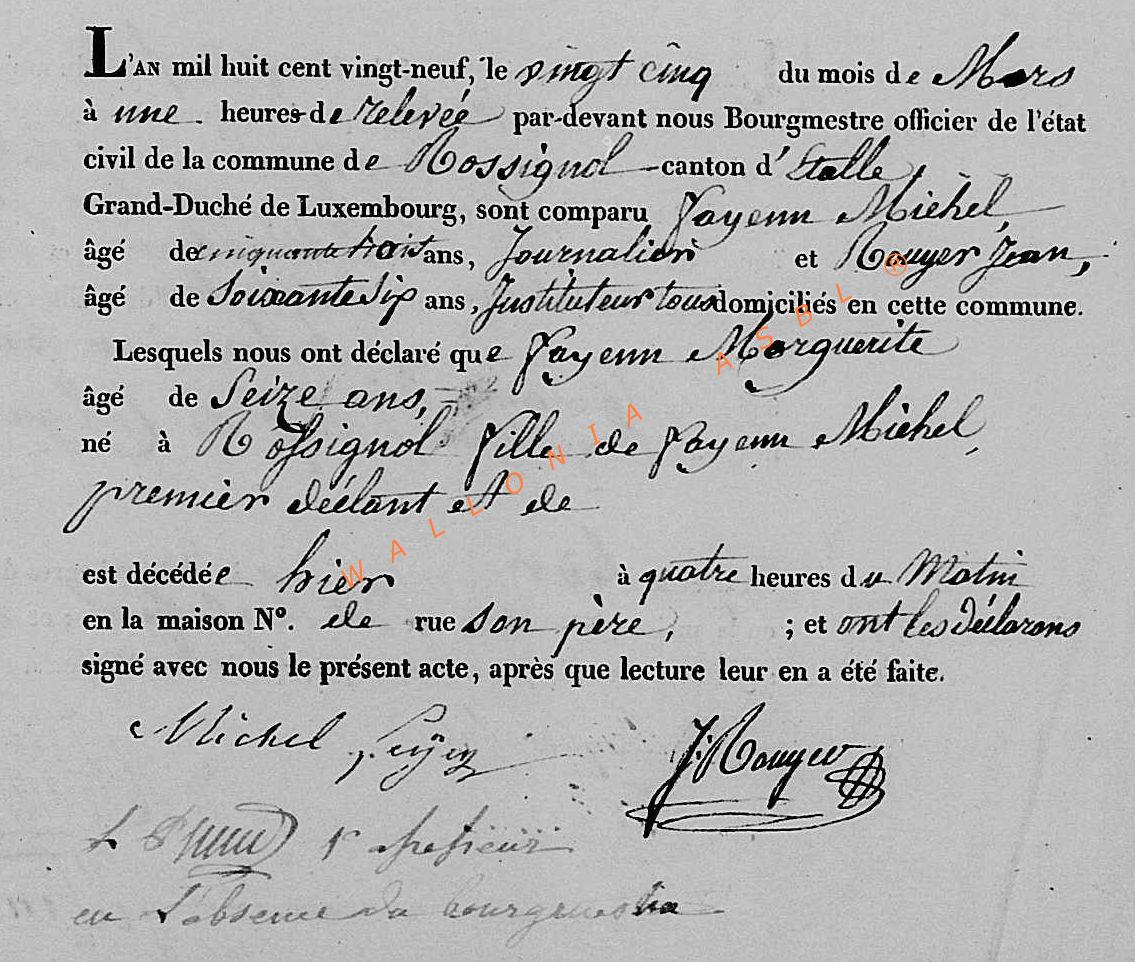 L'AN mil huit cent vingt-neuf, le vingt cinq du mois de Mars
à une heures de relevée par-devant nous Bourgmestre officier de l'état
civil de la commune de Rossignol canton d'Etalle,
Grand-Duché de Luxembourg, sont comparu Fayenn Michel,
âgé de cinquante trois ans, Journalier et Rouyer Jean,
âgé de Soixante Six ans, Instituteur tous domiciliés en cette commune.
Lesquels nous ont déclaré que Fayenn Marguerite
âgé de Seize ans,
né à Rossignol fille de Fayenn Michel,
premier déclant et de
est décédée hier à quatre heures du Matin
en la maison N°. de rue son père, ; et ont les déclarans
signé avec nous le présent acte, après que lecture leur en a été faite.
Michel J. Rouyer
1r assesseur
en l'absence du bourgmestre
WALLONIA ASBL ®